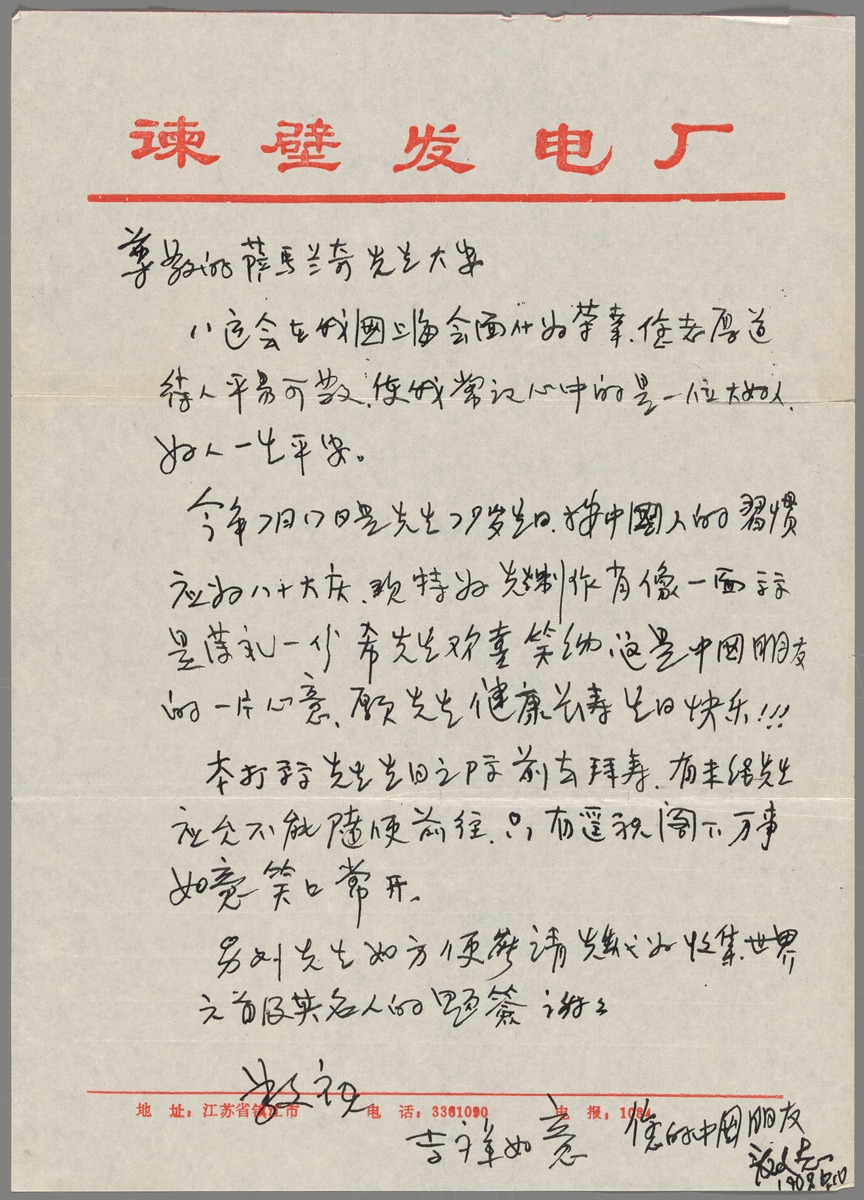 谏壁发电厂
尊敬的萨马兰奇先生大安
八运会在我国上海会面什为荣幸、您老厚道
待人平易可敬、使我常记心中的是一位大好人、
好人一生平安。
今年7月17日是先生79岁生日、按中國人的習慣
应为八十大庆、现特为先生制作肖像一面
是薄礼一份希先生欢喜笑纳、这是中国朋友
的一片心意、愿先生健康长寿生日快乐!!!
本打算先生生日之际前去拜寿、有未经先生
应允不能随便前往、只有遥祝阁下万事
如意笑口常开。
另外先生如方便能请先生代为收集世界
元首及其名人的题簽谢谢
敬祝
吉祥如意
您的中国朋友
地 址:江苏省镇江市 电 话:3361090 电 报:1084